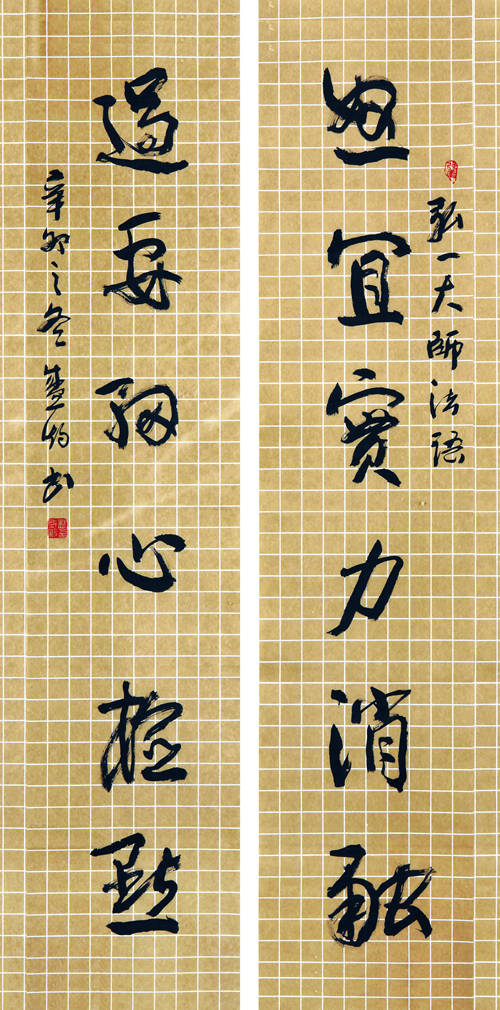 弘一大師法語
怒宜實力消融
過要細心檢點
辛卯之冬 書